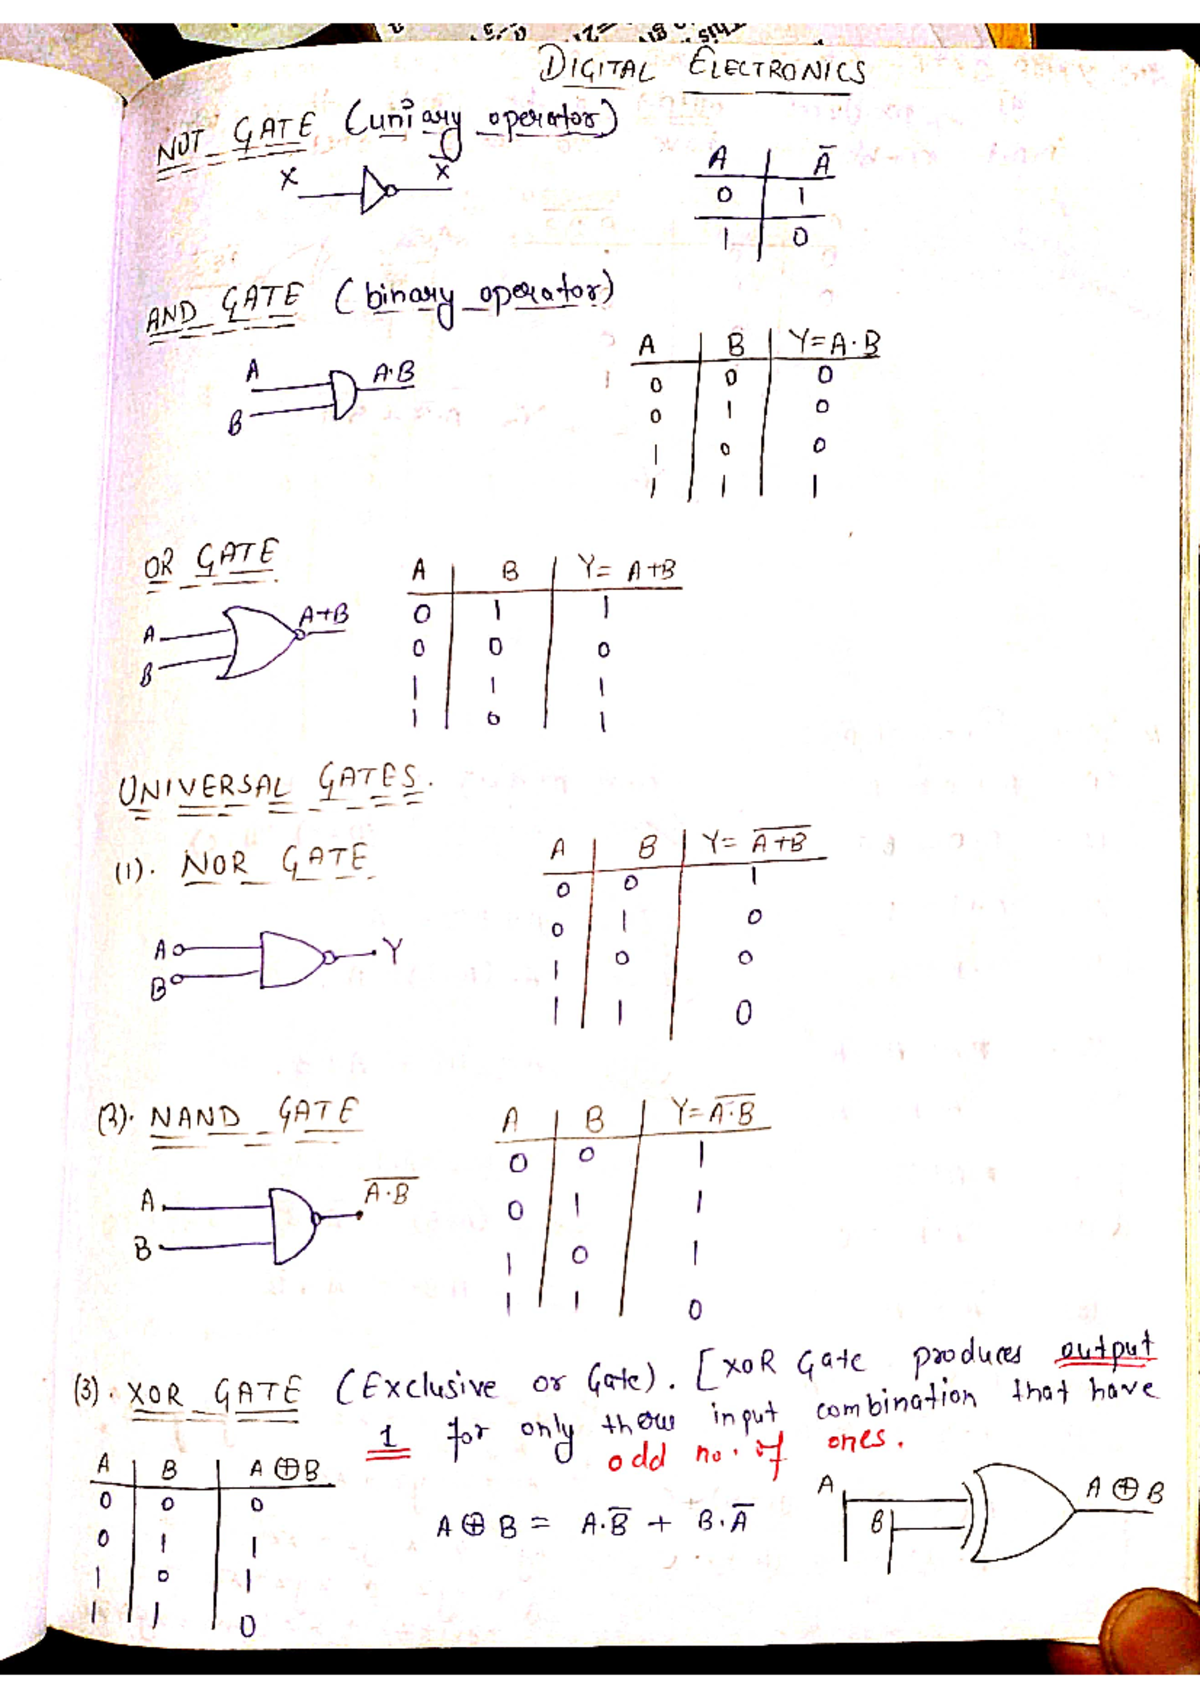 DIGITAL ELECTRONICS
NOT GATE (uniary operator)
X X̅
A | A̅
0 | 1
1 | 0
AND GATE (binary operator)
A
B
A·B
A | B | Y=A·B
0 | 0 | 0
0 | 1 | 0
1 | 0 | 0
1 | 1 | 1
OR GATE
A
B
A+B
A | B | Y= A+B
0 | 1 | 1
0 | 0 | 0
1 | 1 | 1
1 | 0 | 1
UNIVERSAL GATES.
(1). NOR GATE
A
B
Y
A | B | Y= \overline{A+B}
0 | 0 | 1
0 | 1 | 0
1 | 0 | 0
1 | 1 | 0
(2). NAND GATE
A
B
\overline{A·B}
A | B | Y= \overline{A·B}
0 | 0 | 1
0 | 1 | 1
1 | 0 | 1
1 | 1 | 0
(3). XOR GATE (Exclusive or Gate). [XOR Gate produces output
1 for only those input combination that have
odd no. of ones.
A | B | A ⊕ B
0 | 0 | 0
0 | 1 | 1
1 | 0 | 1
1 | 1 | 0
A ⊕ B = A.B̅ + B.A̅
A
B
A ⊕ B